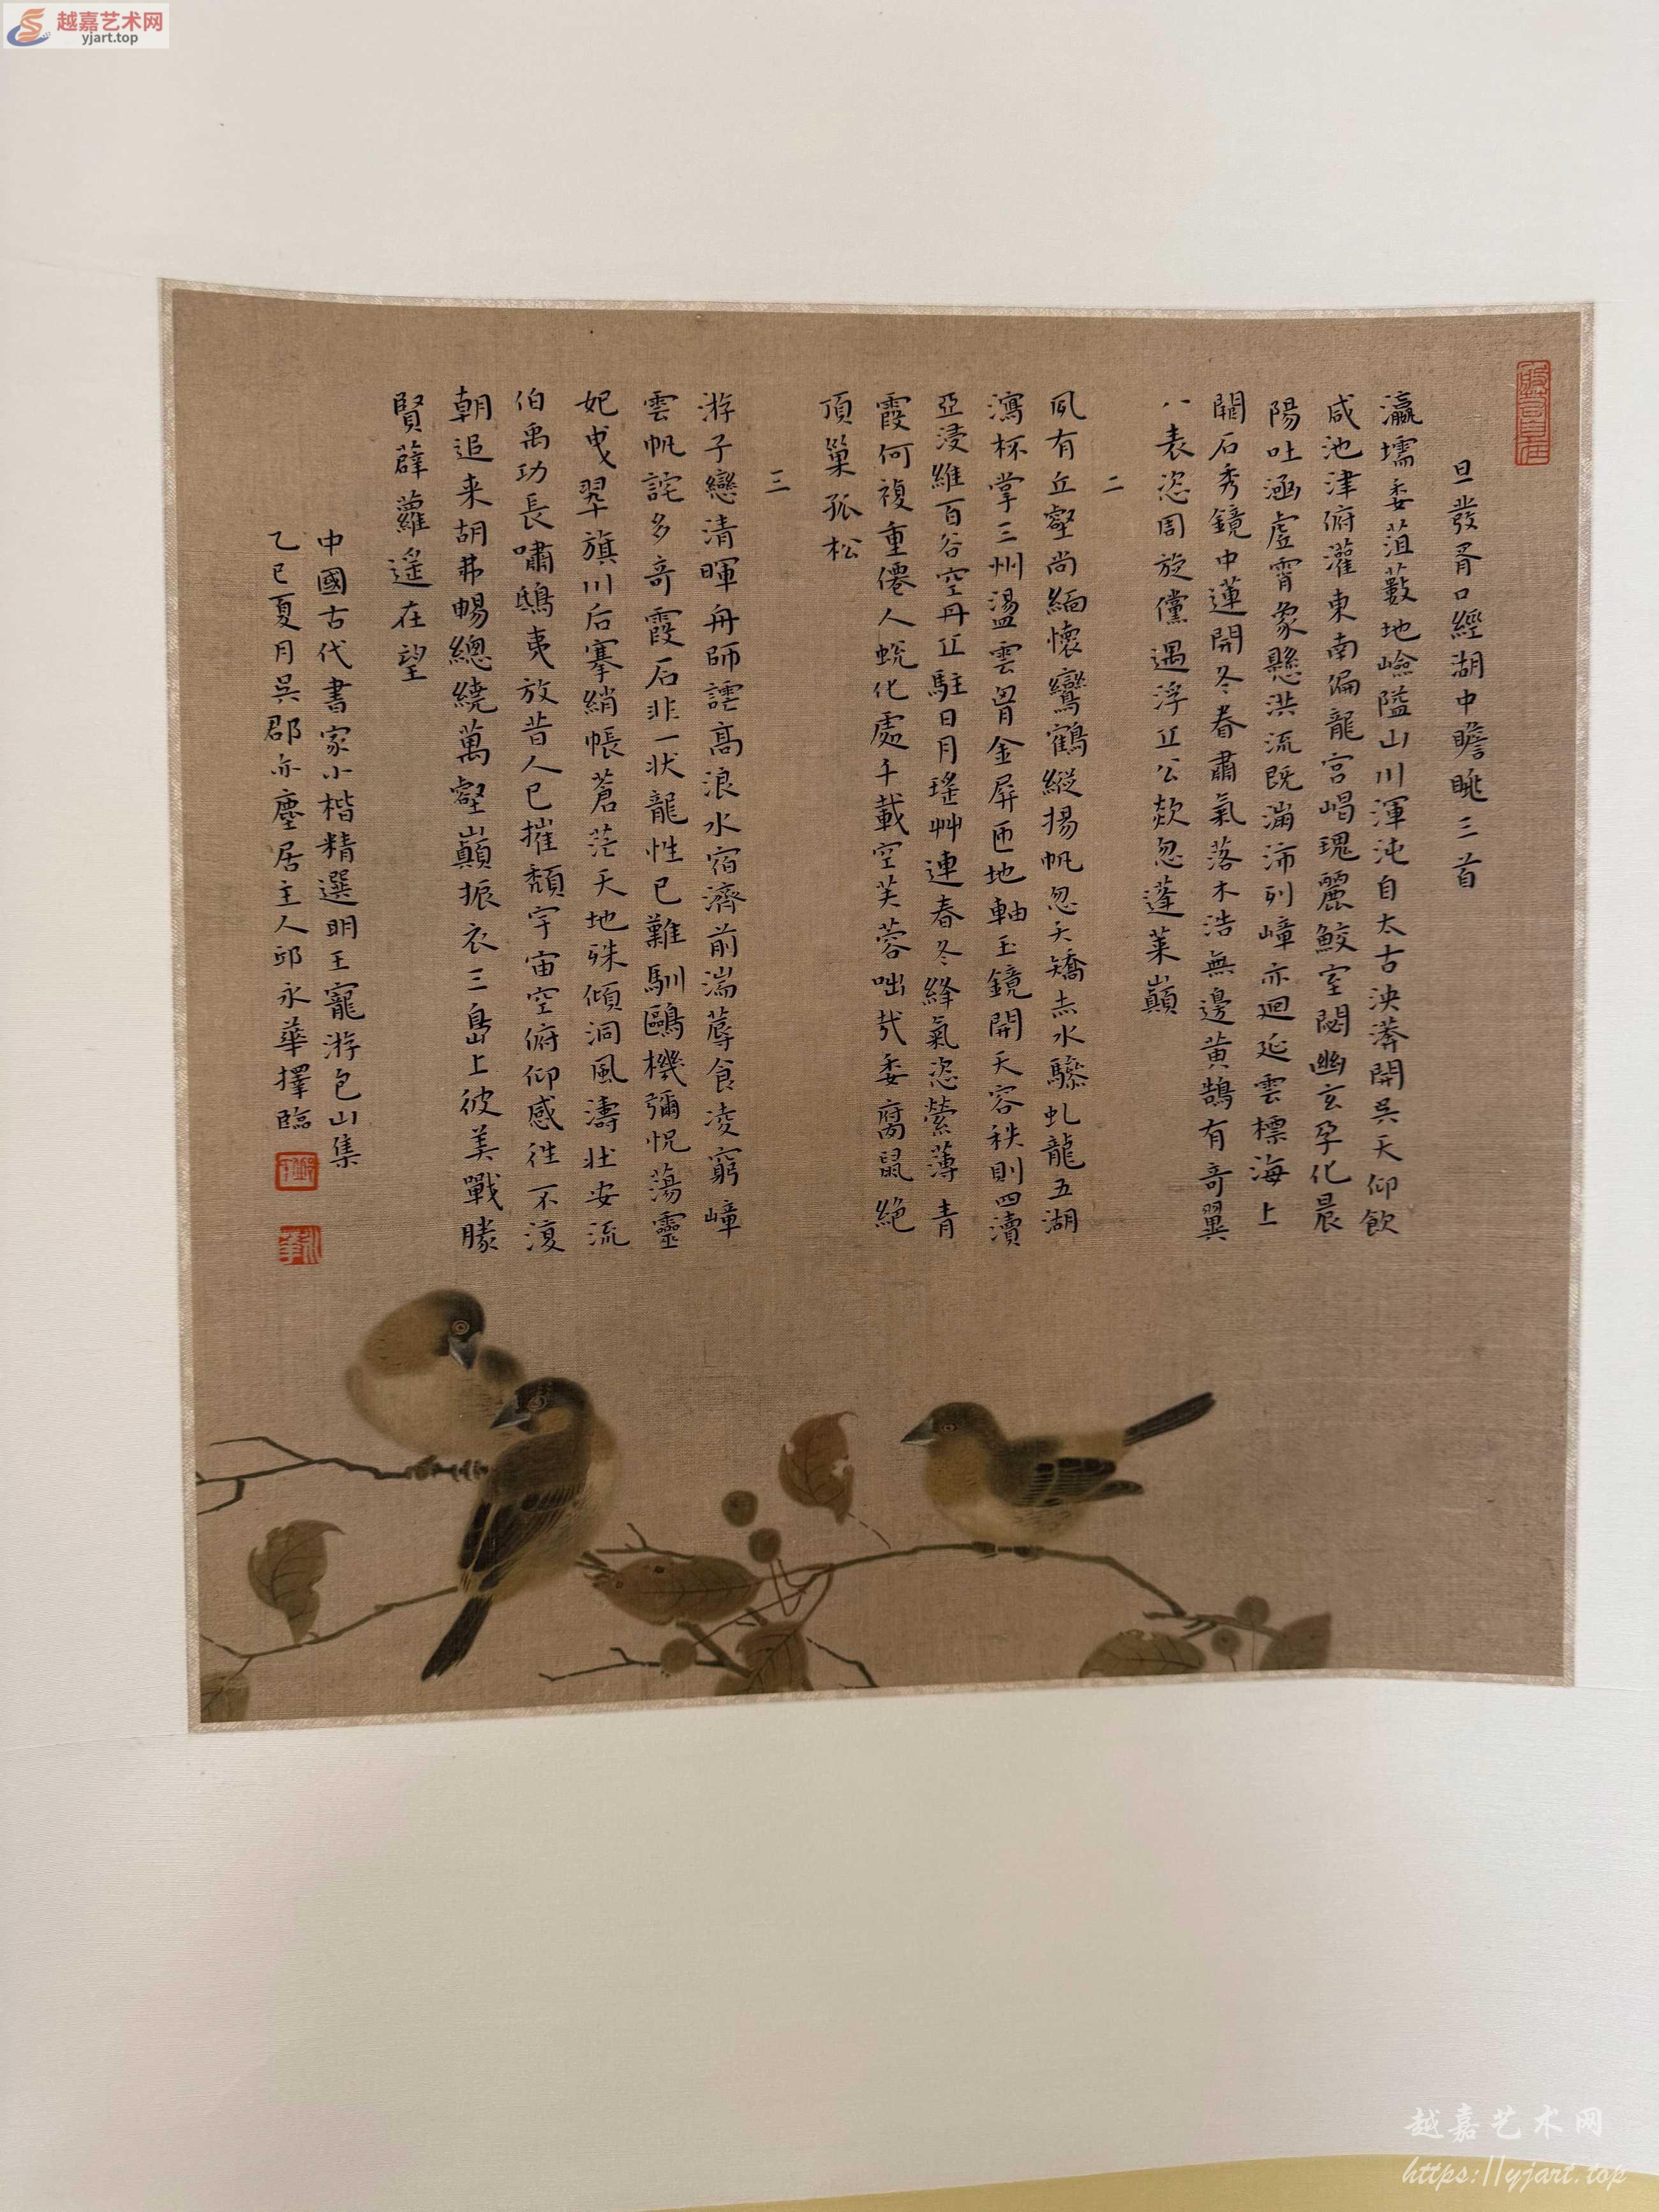 越嘉艺术网
yjart.top
旦發胥口經湖中瞻眺三首
瀛壖委菹藪地嶮隘山川渾沌自太古泱漭開吳天仰飲
咸池津俯灌東南偏龍宮唱瑰麗鮫室閟幽玄孕化晨
陽吐涵虛霄象懸洪流既滿沛列嶂亦迴延雲標海上
闢石秀鏡中蓮開冬眷肅氣落木浩無邊黄鵠有奇翼
八表恣周旋儻遇浮丘公欻忽蓬莱巔
二
夙有丘壑尚緬懷鸞鶴縱揚帆忽夭矯赤水驂虬龍五湖
瀉杯掌三州盪雲胷金屏匝地軸玉鏡開天容秩則四瀆
亞浸維百谷空丹丘駐日月瑤艸連春冬絳氣恣縈薄青
霞何複重僊人蛻化處千載空芙蓉咄哉委腐鼠絶
頂巢孤松
三
游子戀清暉舟師謹高浪水宿濟前湍蓐食凌窮嶂
雲帆詫多奇霞石非一狀龍性已難馴鷗機彌怳蕩靈
妃曳翠旗川后搴綃帳蒼茫天地殊傾洞風濤壯安流
伯禹功長嘯鴟夷放昔人已摧頹宇宙空俯仰感徃不復
朝追来胡弗暢總繞萬壑巔振衣三島上彼美戰勝
賢薜蘿遙在望
中國古代書家小楷精選明王寵游包山集
乙巳夏月吳郡亦塵居主人邱永華擇臨
越嘉艺术网
https://yjart.top